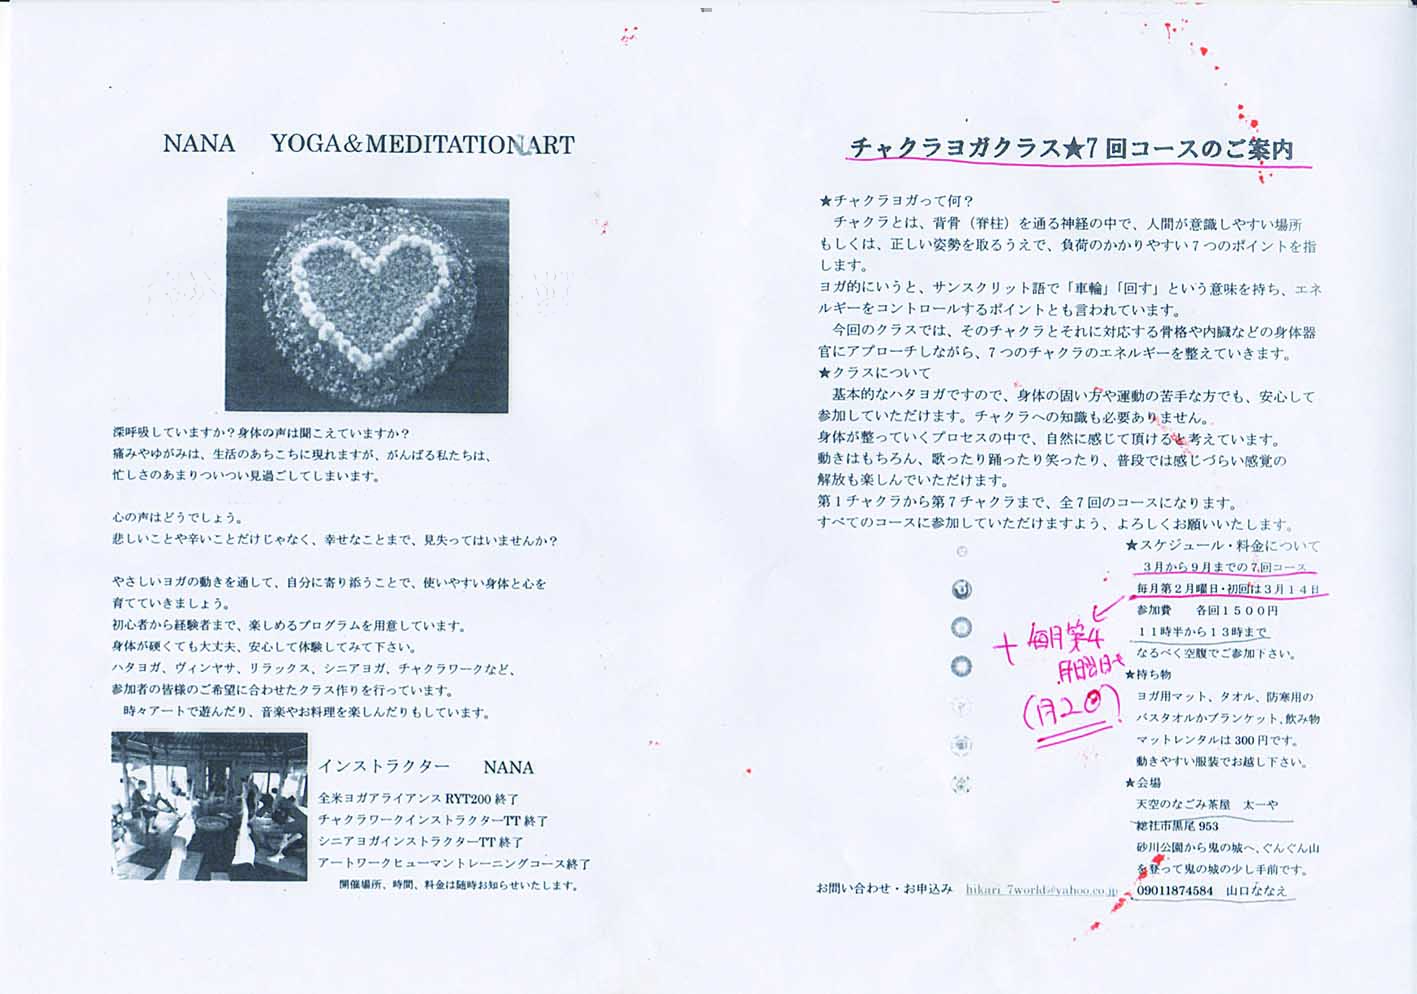 NANA YOGA&MEDITATIONART
深呼吸していますか？身体の声は聞こえていますか？
痛みやゆがみは、生活のあちこちに現れますが、がんばる私たちは、
忙しさのあまりついつい見過ごしてしまいます。
心の声はどうでしょう。
悲しいことや辛いことだけじゃなく、幸せなことまで、見失ってはいませんか？
やさしいヨガの動きを通して、自分に寄り添うことで、使いやすい身体と心を
育てていきましょう。
初心者から経験者まで、楽しめるプログラムを用意しています。
身体が硬くても大丈夫、安心して体験してみて下さい。
ハタヨガ、ヴィンヤサ、リラックス、シニアヨガ、チャクラワークなど、
参加者の皆様のご希望に合わせたクラス作りを行っています。
時々アートで遊んだり、音楽やお料理を楽しんだりもしています。
インストラクター NANA
全米ヨガアライアンス RYT200 終了
チャクラワークインストラクターTT 終了
シニアヨガインストラクターTT 終了
アートワークヒューマントレーニングコース終了
開催場所、時間、料金は随時お知らせいたします。
チャクラヨガクラス★7 回コースのご案内
★チャクラヨガって何？
チャクラとは、背骨（脊柱）を通る神経の中で、人間が意識しやすい場所
もしくは、正しい姿勢を取るうえで、負荷のかかりやすい７つのポイントを指
します。
ヨガ的にいうと、サンスクリット語で「車輪」「回す」という意味を持ち、エネ
ルギーをコントロールするポイントとも言われています。
今回のクラスでは、そのチャクラとそれに対応する骨格や内臓などの身体器
官にアプローチしながら、７つのチャクラのエネルギーを整えていきます。
★クラスについて
基本的なハタヨガですので、身体の固い方や運動の苦手な方でも、安心して
参加していただけます。チャクラへの知識も必要ありません。
身体が整っていくプロセスの中で、自然に感じて頂けると考えています。
動きはもちろん、歌ったり踊ったり笑ったり、普段では感じづらい感覚の
解放も楽しんでいただけます。
第１チャクラから第７チャクラまで、全７回のコースになります。
すべてのコースに参加していただけますよう、よろしくお願いいたします。
★スケジュール・料金について
３月から９月までの７回コース
毎月第２月曜日・初回は３月１４日
＋毎月第4
月曜日も
(月2回)
参加費 各回１５００円
１１時半から１３時まで
なるべく空腹でご参加下さい。
★持ち物
ヨガ用マット、タオル、防寒用の
バスタオルかブランケット、飲み物
マットレンタルは 300 円です。
動きやすい服装でお越し下さい。
★会場
天空のなごみ茶屋 太一や
総社市黒尾 953
砂川公園から鬼の城へ、ぐんぐん山
を登って鬼の城の少し手前です。
お問い合わせ・お申込み hikari_7world@yahoo.co.jp 09011874584 山口ななえ